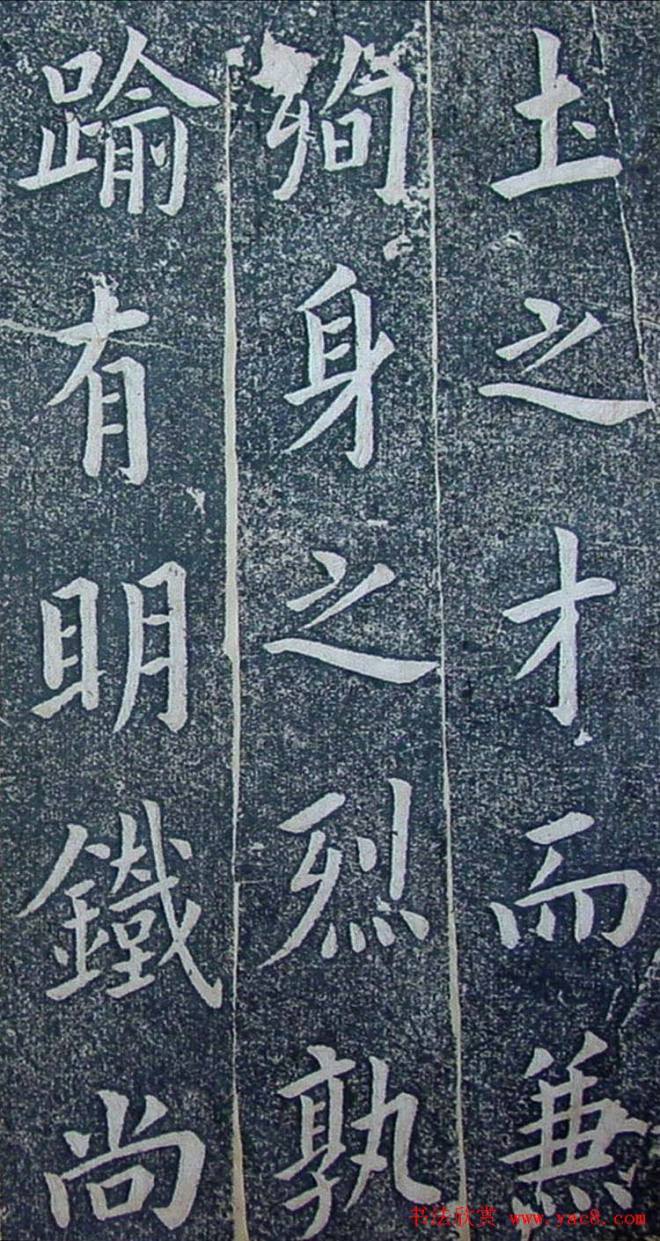 土之才而兼
殉身之烈孰
踰有明鐵尚
书法欣赏 www.yac8.com